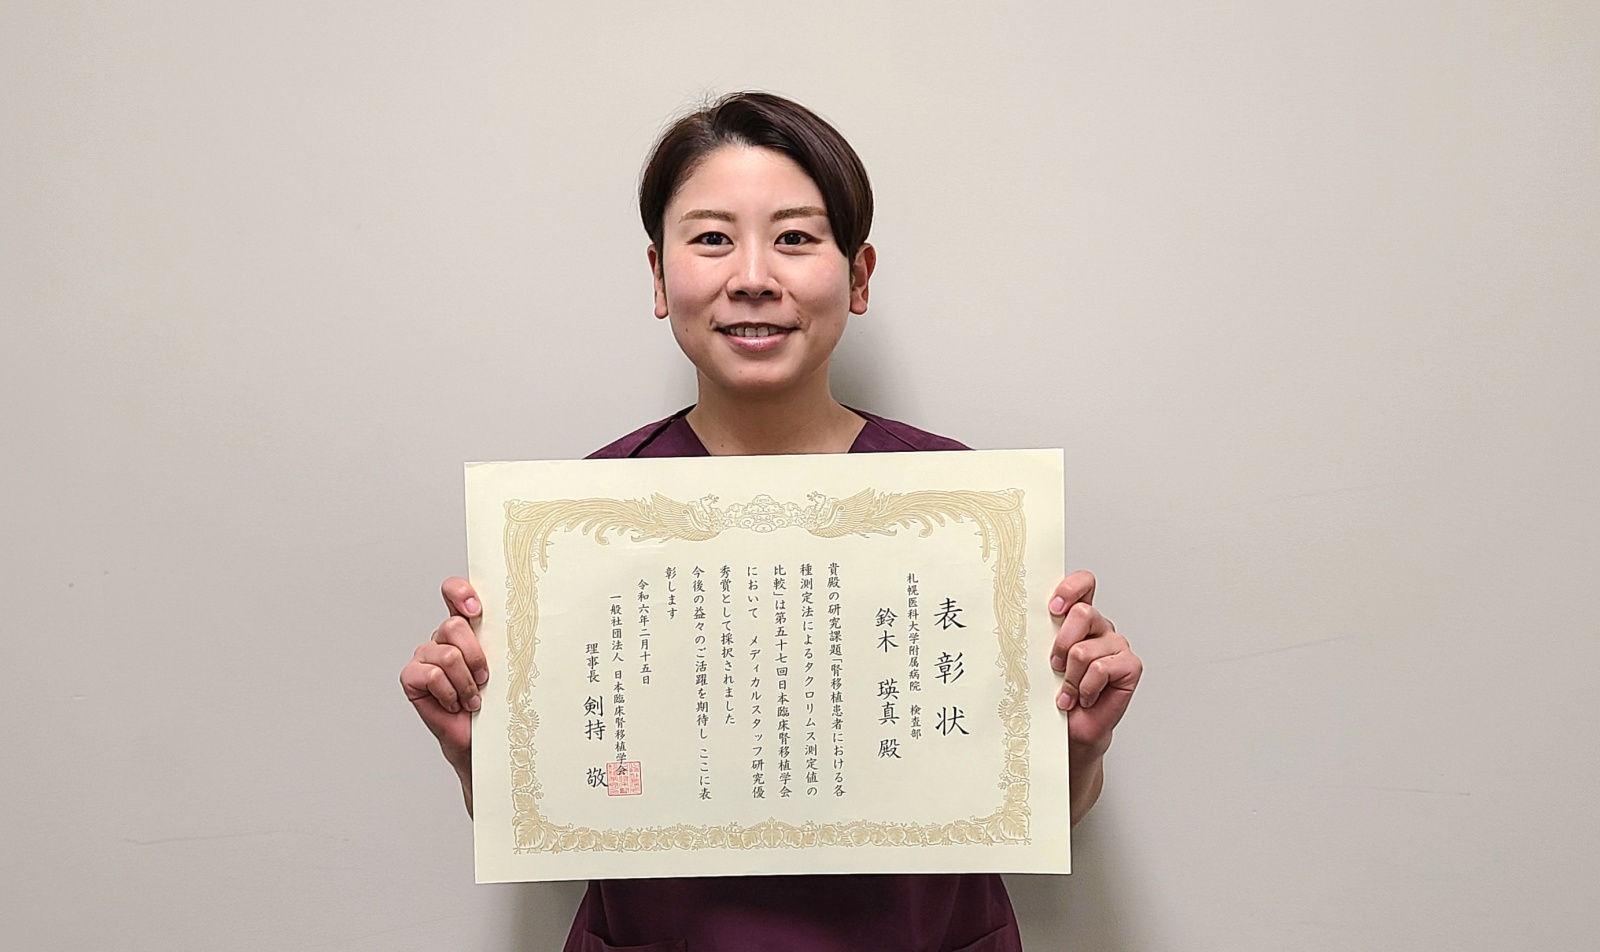 表彰状
札幌医科大学附属病院 検査部
鈴木 瑛真 殿
貴殿の研究課題「腎移植患者における各
種測定法によるタクロリムス測定値の
比較」は第五十七回日本臨床腎移植学会
において メディカルスタッフ研究優
秀賞として採択されました
今後の益々のご活躍を期待し ここに表
彰します
令和六年二月十五日
一般社団法人 日本臨床腎移植学会
理事長 剣持 敬